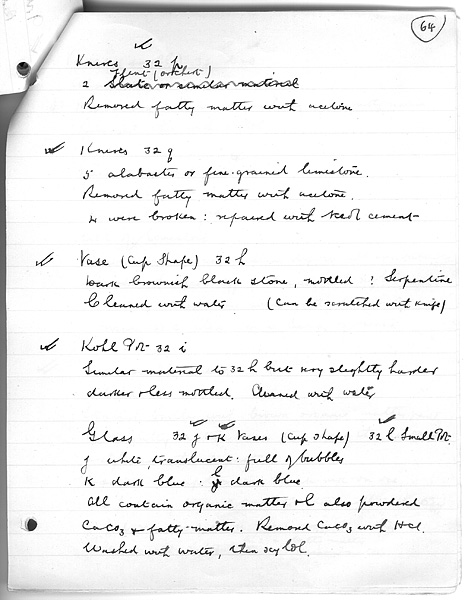 64
Knives 32 p
flint (or chert)
2 Slate or similar material
Removed fatty matter with acetone
Knives 32 q
5 alabaster or fine-grained limestone.
Removed fatty matter with acetone.
4 were broken: repaired with cement
Vase (Cup Shape) 32 h
Dark brownish black stone, mottled ? Serpentine
Cleaned with water (Can be scratched with knife)
Kohl Pot 32 i
Similar material to 32 h but very slightly harder
darker & less mottled. Cleaned with water
Glass 32 j & k Vases (Cup Shape) 32 l Small Pot.
j white, translucent: full of bubbles
k dark blue : l dark blue
All contain organic matter & l also powdered
CaCO3 & fatty matter. Removed CaCO3 with HCl.
Washed with water, then xylol.